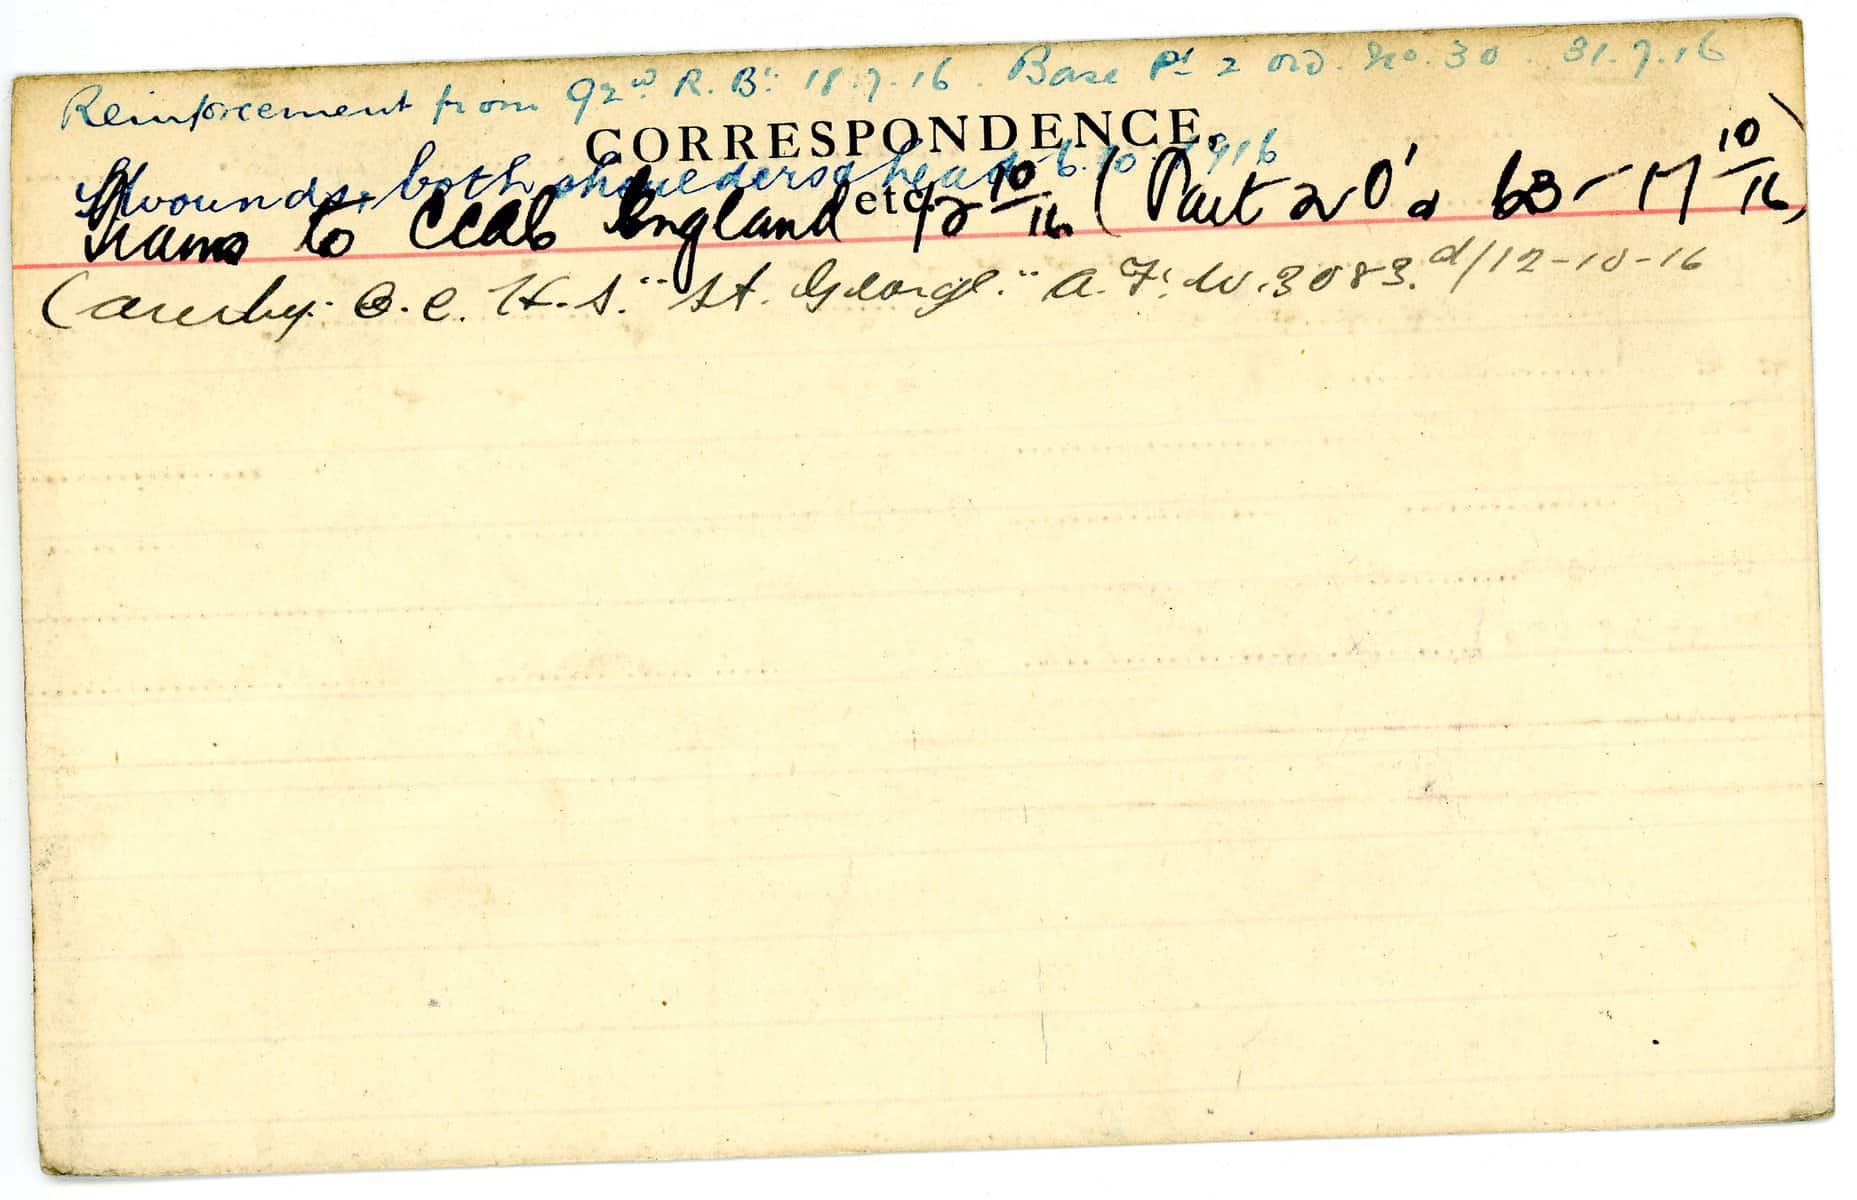 Reinforcement from 92nd R. Bn. 18.7.16. Base Pt 2 ord. No. 30. 31.7.16
CORRESPONDENCE,
wounds, both shoulders & head 6.10.1916
Trans to CCAC England 12 10/16 (Part 2 O's 63-17 10/16)
etc.
(Auth'y: O.C. H.S. "St. George." A.F. W.3083. d/12-10-16